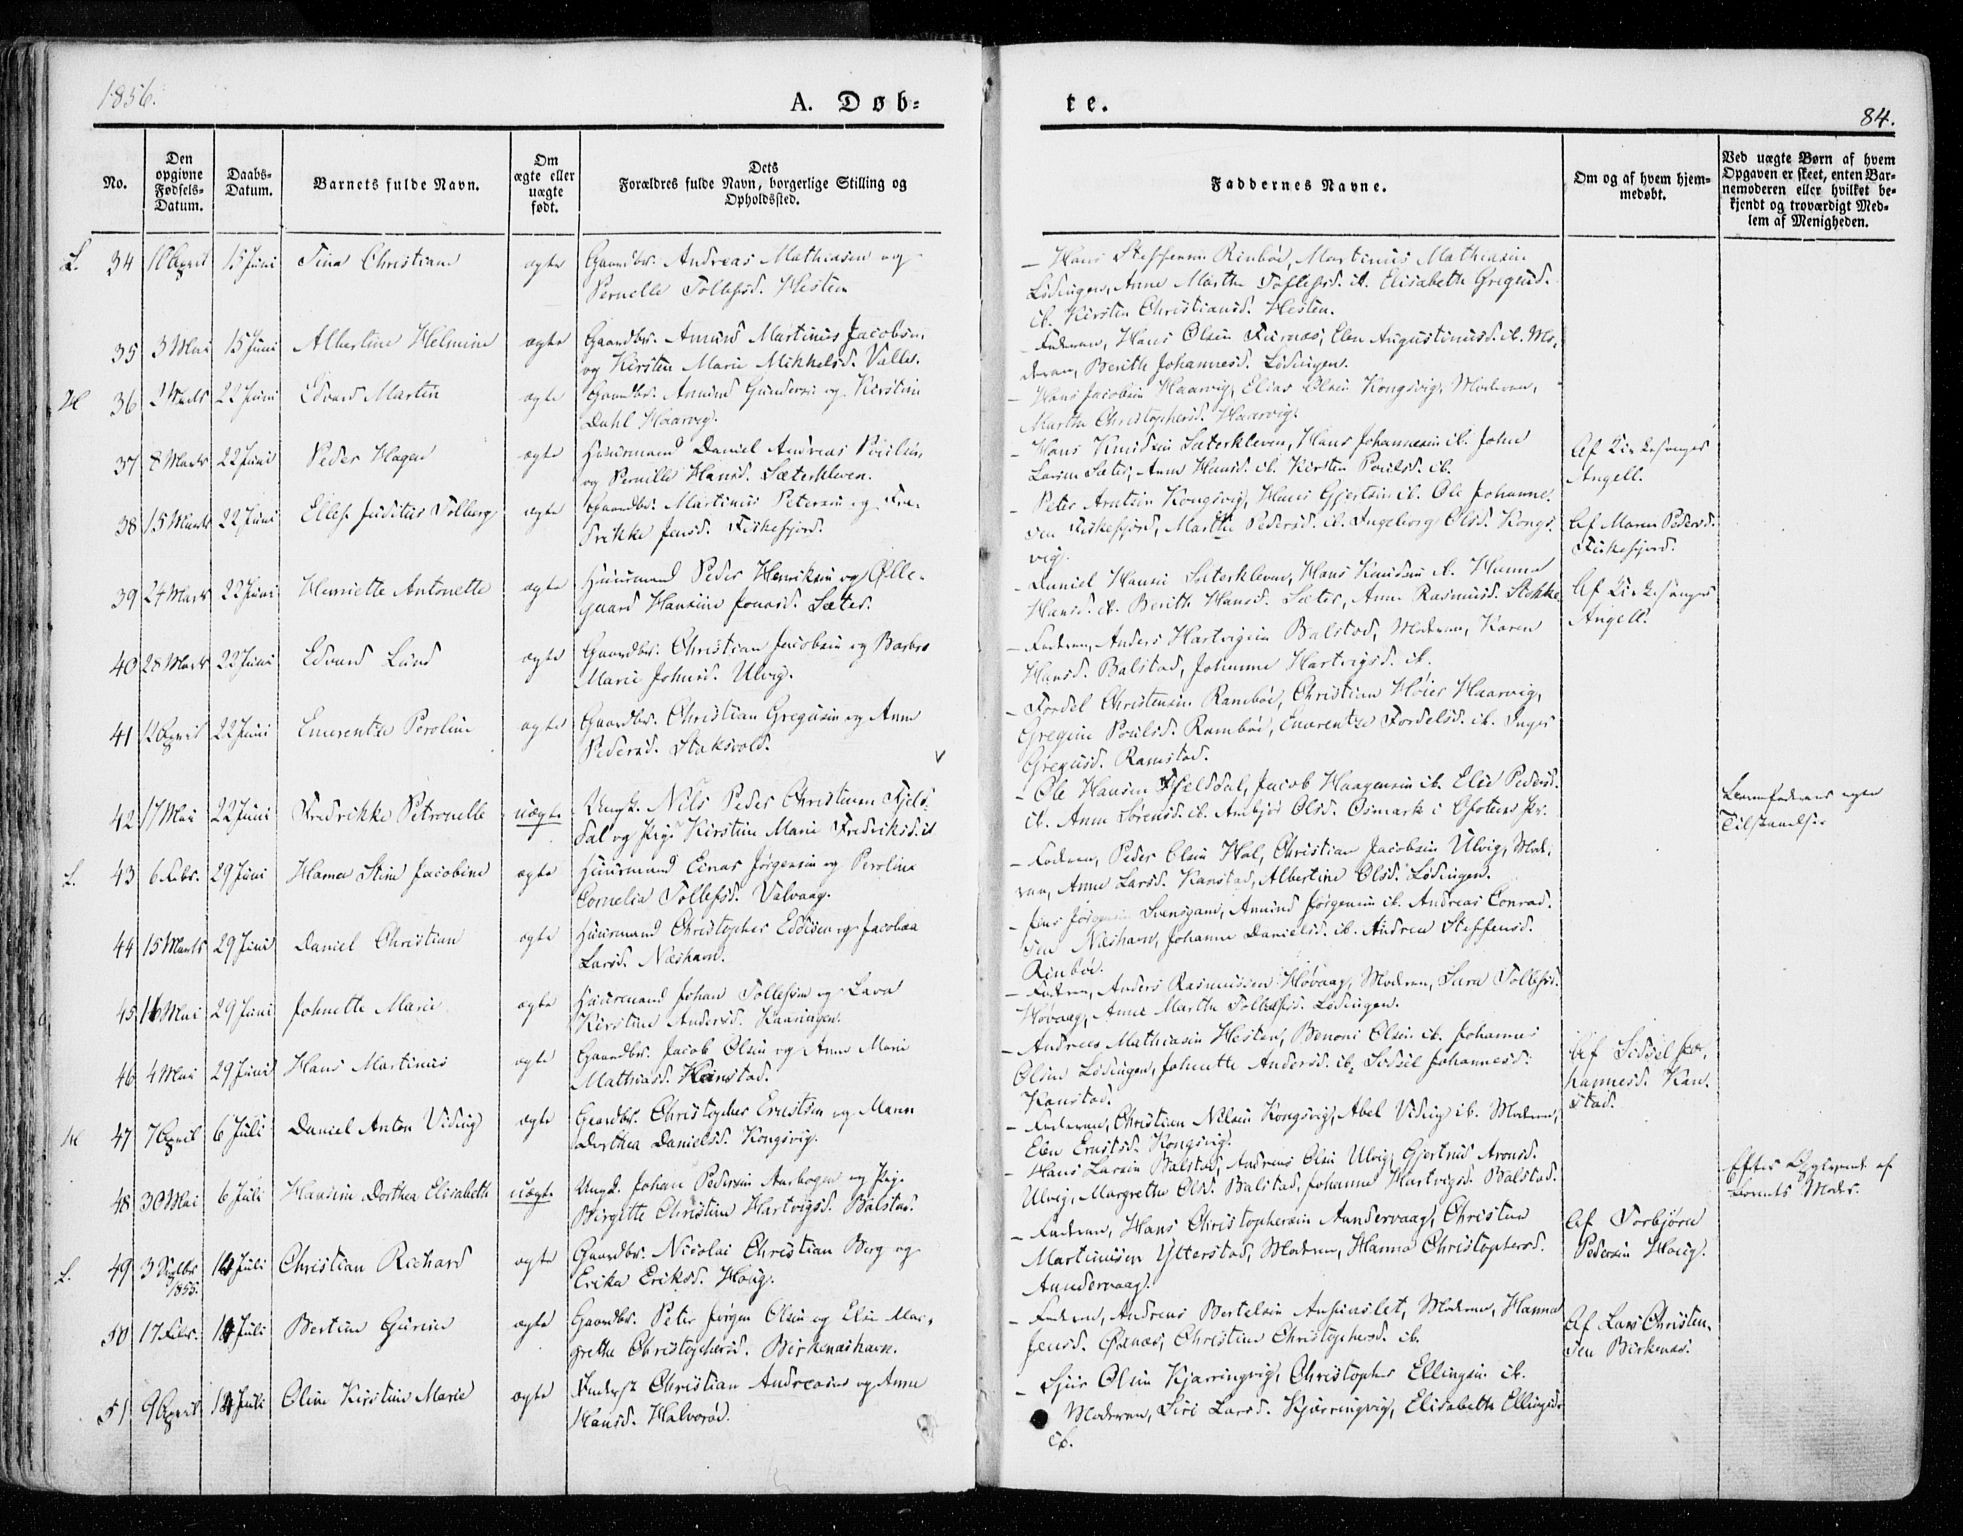 1856.
A. Døb=
te.
84.
No.
Den opgivne Fødsels-Datum.
Daabs-Datum.
Barnets fulde Navn.
Om ægte eller uægte født.
Dets Forældres fulde Navn, borgerlige Stilling og Opholdssted.
Faddernes Navne.
Om og af hvem hjemmedøbt.
Ved uægte Børn af hvem Opgaven er skeet, enten Barnemoderen eller hvilket bekjendt og troværdigt Medlem af Menigheden.
L. 34 April 15 Juni Christiane ægte Gaardbr. Andreas Mathiasen og
Pernelle Tollefsd. Hesten
Hans Steffensen Rinbøe, Martinus Mathiasen
Lødingen, Anne Martha Tollefsd. ib. Elisabeth Gregusd.
ib. Kirsten Christiansd. Hesten.
35 3 Mai 15 Juni Albertine Helmine ægte Gaardbr. Amund Martinus Jacobsen
og Kirsten Marie Mikkelsd. Valle.
Faderen, Hans Olsen Elen Augustinusd. ib. Mo-
deren, Berith Johannesd. Lødingen.
36 Marts 22 Juni Edvard Martin ægte Gaardbr. Amund Gundersen og Kirstin
Dahl Haarvig.
Hans Jacobsen Haarvig, Elias Olsen Kongsvig, Moderen,
Martha Christophersd. Haarvig.
37 8 Marts 22 Juni Peder Hagen ægte Huusmand Daniel Andreas
og Pernille Hansd. Sæterkleven.
Hans Knudsen Sæterkleven, Hans Johannesen ib. John
Larsen Sæter, Anne Hansd. ib. Kirsten Poulsd. ib.
Af Kirkesanger
Angell.
38 15 Marts 22 Juni Tollberg ægte Gaardbr. Martinus Petersen og Fre-
drikke Jensd. Fiskefjord.
Peter Arntsen Kongsvig, Hans Gjertsen ib. Ole Johanne-
sen Fiskefjord, Marthe Pedersd. ib. Ingeborg Olsd. Kongs-
vig.
Af Maren Pedersd.
Fiskefjord.
39 24 Marts 22 Juni Henriette Antonette ægte Huusmand Peder Henriksen og Olle-
gaard Hansine Jonasd. Sæter.
Daniel Hansen Sæterkleven, Hans Knudsen ib. Hanna
Hansd. ib. Berith Hansd. Sæter, Anne Rasmusd. Stokke
Af Kirkesanger
Angell.
40 28 Marts 22 Juni Edvard Lund ægte Gaardbr. Christian Jacobsen og Barbro
Marie Johnsd. Ulvig.
Faderen, Anders Hartvigsen Balstad, Moderen, Karen
Hansd. Balstad, Johanna Hartvigsd. ib.
41 12 April 22 Juni Emerentze Peroline ægte Gaardbr. Christian Gregusen og Anne
Pedersd. Stoksvold.
Fordel Christensen Rambøe, Christian Høier Haarvig,
Gregine Poulsd. Rambøe, Emerentze Fordelsd. ib. Inger
Gregusd. Ramstad.
42 17 Mai 22 Juni Fredrikke Petronelle uægte Ungk. Nils Peder Christensen Fjels-
dal og Pige Kirstine Marie Fredriksd. ib
Ole Hansen Fjelddal, Jacob Haagensen ib. Elie Pedersd.
ib. Anne Sørensd. ib. Anbjør Olsd. Osmark i Ofotens Pr.
Barnefaderens egen
Tilstaaelse.
L. 43 6 Febr. 29 Juni Hanna Stine Jacobine ægte Huusmand Einar Jørgensen og Peroline
Cornelia Tollefsd. Valvaag.
Faderen, Peder Olsen Hol, Christian Jacobsen Ulvig, Mode-
ren, Anne Larsd. Kanstad, Albertine Olsd. Lødingen.
44 15 Marts 29 Juni Daniel Christian ægte Huusmand Christopher Eddisen og Jacobea
Larsd. Næshavn.
Jens Jørgensen Svensgam, Amund Jørgensen ib. Andreas Conrad-
sen Næshavn, Johanna Danielsd. ib. Andrea Steffensd.
Rinbøe.
45 16 Mai 29 Juni Johnette Marie ægte Huusmand Johan Tollefsen og Lava
Kirstine Andersd. Kaaringen.
Faderen, Anders Rasmussen Høvaag, Moderen, Sara Tollefsd.
Høvaag, Anne Martha Tollefsd. Lødingen.
46 4 Mai 29 Juni Hans Martinus ægte Gaardbr. Jacob Olsen og Anne Marie
Mathiasd. Kanstad.
Andreas Mathiasen Hesten, Benoni Olsen ib. Johannes
Olsen Lødingen, Johnette Andersd. ib. Sidsel Johannesd.
Kanstad.
Af Sidsel Jo-
hannesd. Kan-
stad.
47 7 April 6 Juli Daniel Anton Viding ægte Gaardbr. Christopher Erntsen og Maren
Dorthea Danielsd. Kongsvig.
Faderen, Christian Nilsen Kongsvig, Abel Viding ib. Moderen,
Elen Erntsd. Kongsvig.
48 30 Mai 6 Juli Hansine Dorthea Elisabeth uægte Ungk. Johan Pedersen Aarbogen og Pige
Birgitte Christine Hartvigsd. Balstad.
Hans Larsen Balstad, Andreas Olsen Ulvig, Gjertrud Aronsd.
Ulvig, Margrethe Olsd. Balstad, Johanna Hartvigsd. Balstad.
Efter Opgivende af
Barnets Moder.
L. 49 3 1855. 14 Juli Christian Richard ægte Gaardbr. Nicolai Christian Berg og
Erika Eriksd. Houg.
Faderen, Hans Christophersen Aundervaag, Christen
Martinusen Ytterstad, Moderen, Hanna Christophersd.
Aundervaag.
Af Torbjørn
Pedersen Houg.
50 17 Febr. 14 Juli Bertine Gurine ægte Gaardbr. Peter Jørgen Olsen og Elen Mar-
grethe Christophersd. Birkenæshavn.
Faderen, Andreas Bertelsen Moderen, Hanna
Jensd. Øxnæs, Christine Christophersd. ib.
Af Lars Christen-
sen Birkenæs.
51 9 April 14 Juli Oline Kirstine Marie ægte Inderst Christian Andreasen og Anne
Hansd. Halvorød.
Sjur Olsen Kjærringvig, Christopher Ellingsen ib.
Moderen, Siri Larsd. Kjærringvig, Elisabeth Ellingsd.
ib.